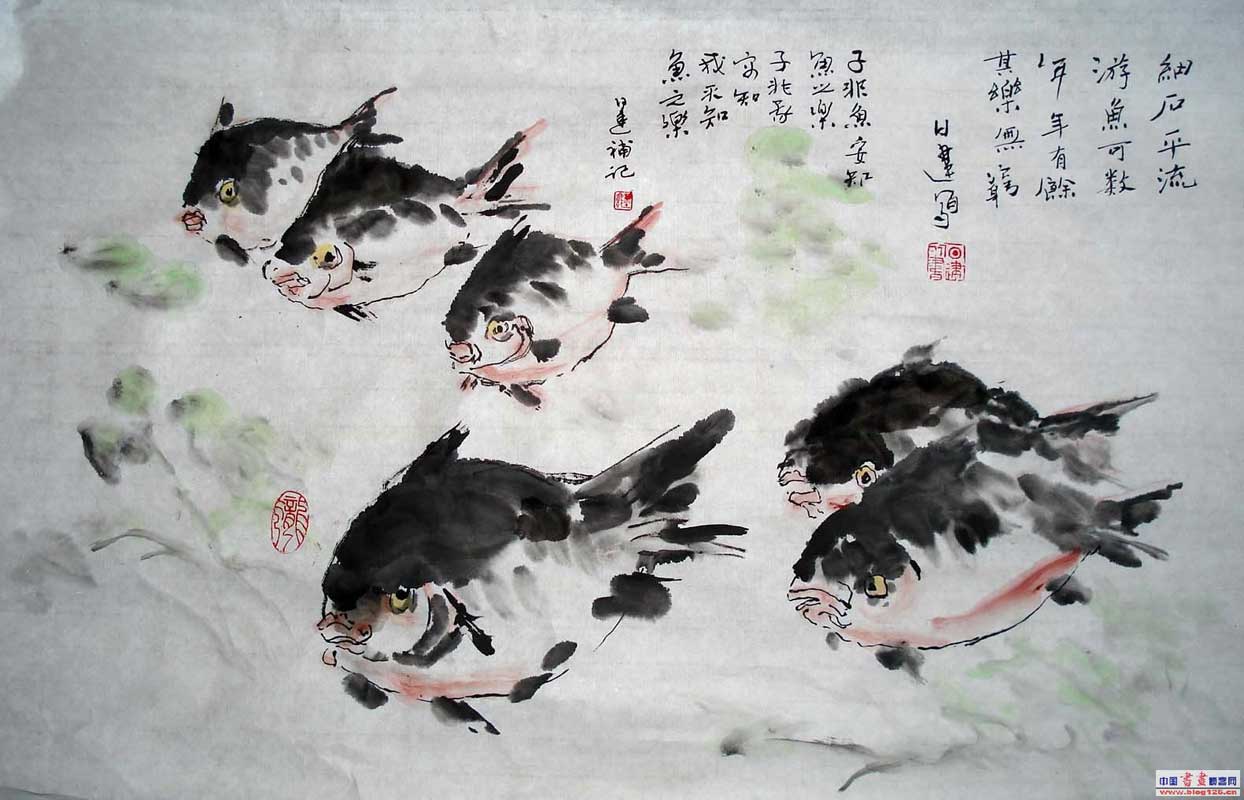 細石平流
游魚可数
年年有餘
其樂無窮
日寫
子非魚安知
魚之樂
子非我
安知
我不知
魚之樂
日補记
中国書畫博客网
www.blog126.cn